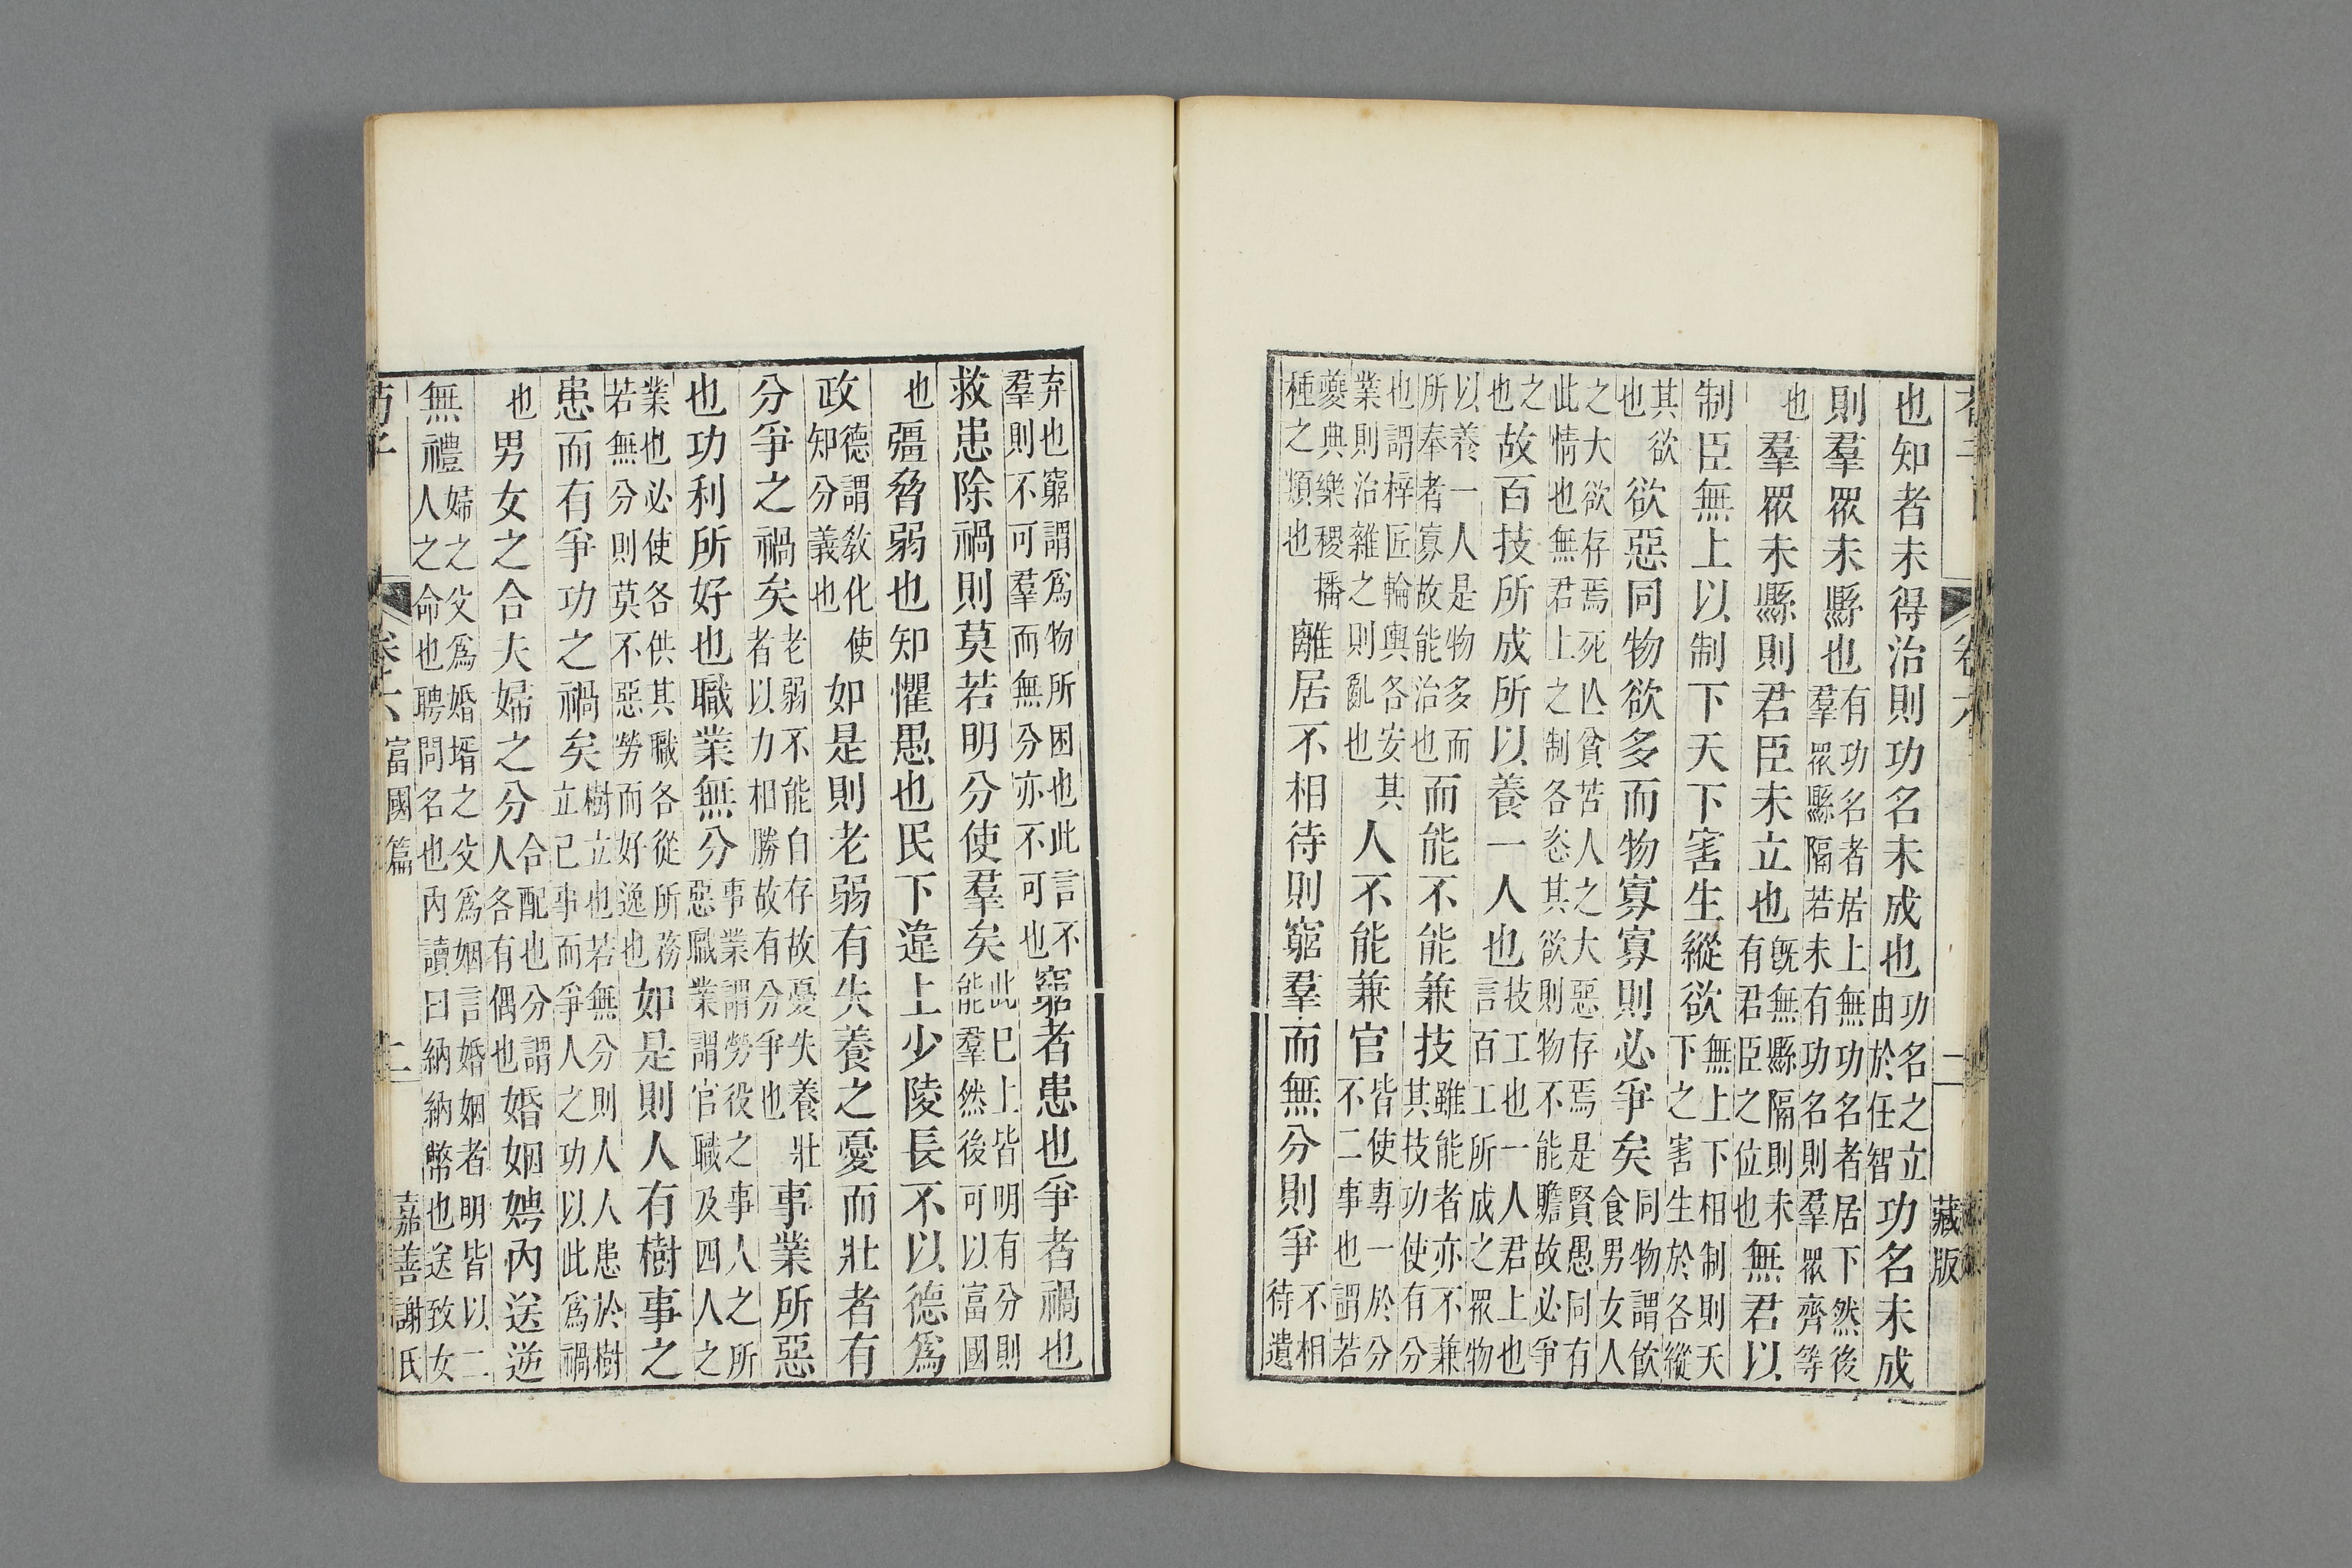 卷六 二 藏版
也知者未得治則功名未成也功名之立由於任智功名未成
則羣眾未縣也有功名者居上無功名者居下然後羣眾縣隔若未有功名則羣眾齊等
也羣眾未縣則君臣未立也旣無縣隔則未有君臣之位也無君以
制臣無上以制下天下害生縱欲無上下相制則天下之害生於各縱
其欲也欲惡同物欲多而物寡寡則必爭矣同物謂飲食男女人
之大欲存焉死亾貧苦人之大惡存焉是賢愚同有此情也無君上之制各恣其欲則物不能贍故必爭
之也故百技所成所以養一人也技工也一人君上也言百工所成之眾物
以養一人是物多而所奉者寡故能治也而能不能兼技雖能者亦不兼其技功使有分
也謂梓匠輪輿各安其業則治雜之則亂也人不能兼官皆使專一於分不二事也謂若
夔典樂稷播種之類也離居不相待則窮羣而無分則爭不相待遺
弃也窮謂爲物所困也此言不羣則不可羣而無分亦不可也窮者患也爭者禍也
救患除禍則莫若明分使羣矣此巳上皆明有分則能羣然後可以富國
也彊脅弱也知懼愚也民下違上少陵長不以德爲
政德謂敎化使知分義也如是則老弱有失養之憂而壯者有
分爭之禍矣老弱不能自存故憂失養壯者以力相勝故有分爭也事業所惡
也功利所好也職業無分事業謂勞役之事人之所惡職業謂官職及四人之
業也必使各供其職各從所務若無分則莫不惡勞而好逸也如是則人有樹事之
患而有爭功之禍矣樹立也若無分則人人患於樹立己事而爭人之功以此爲禍
也男女之合夫婦之分合配也分謂人各有偶也婚姻娉內送逆
無禮婦之父爲婚壻之父爲姻言婚姻者明皆以二人之命也聘問名也內讀曰納納幣也送致女
卷六 富國篇 二 嘉善謝氏